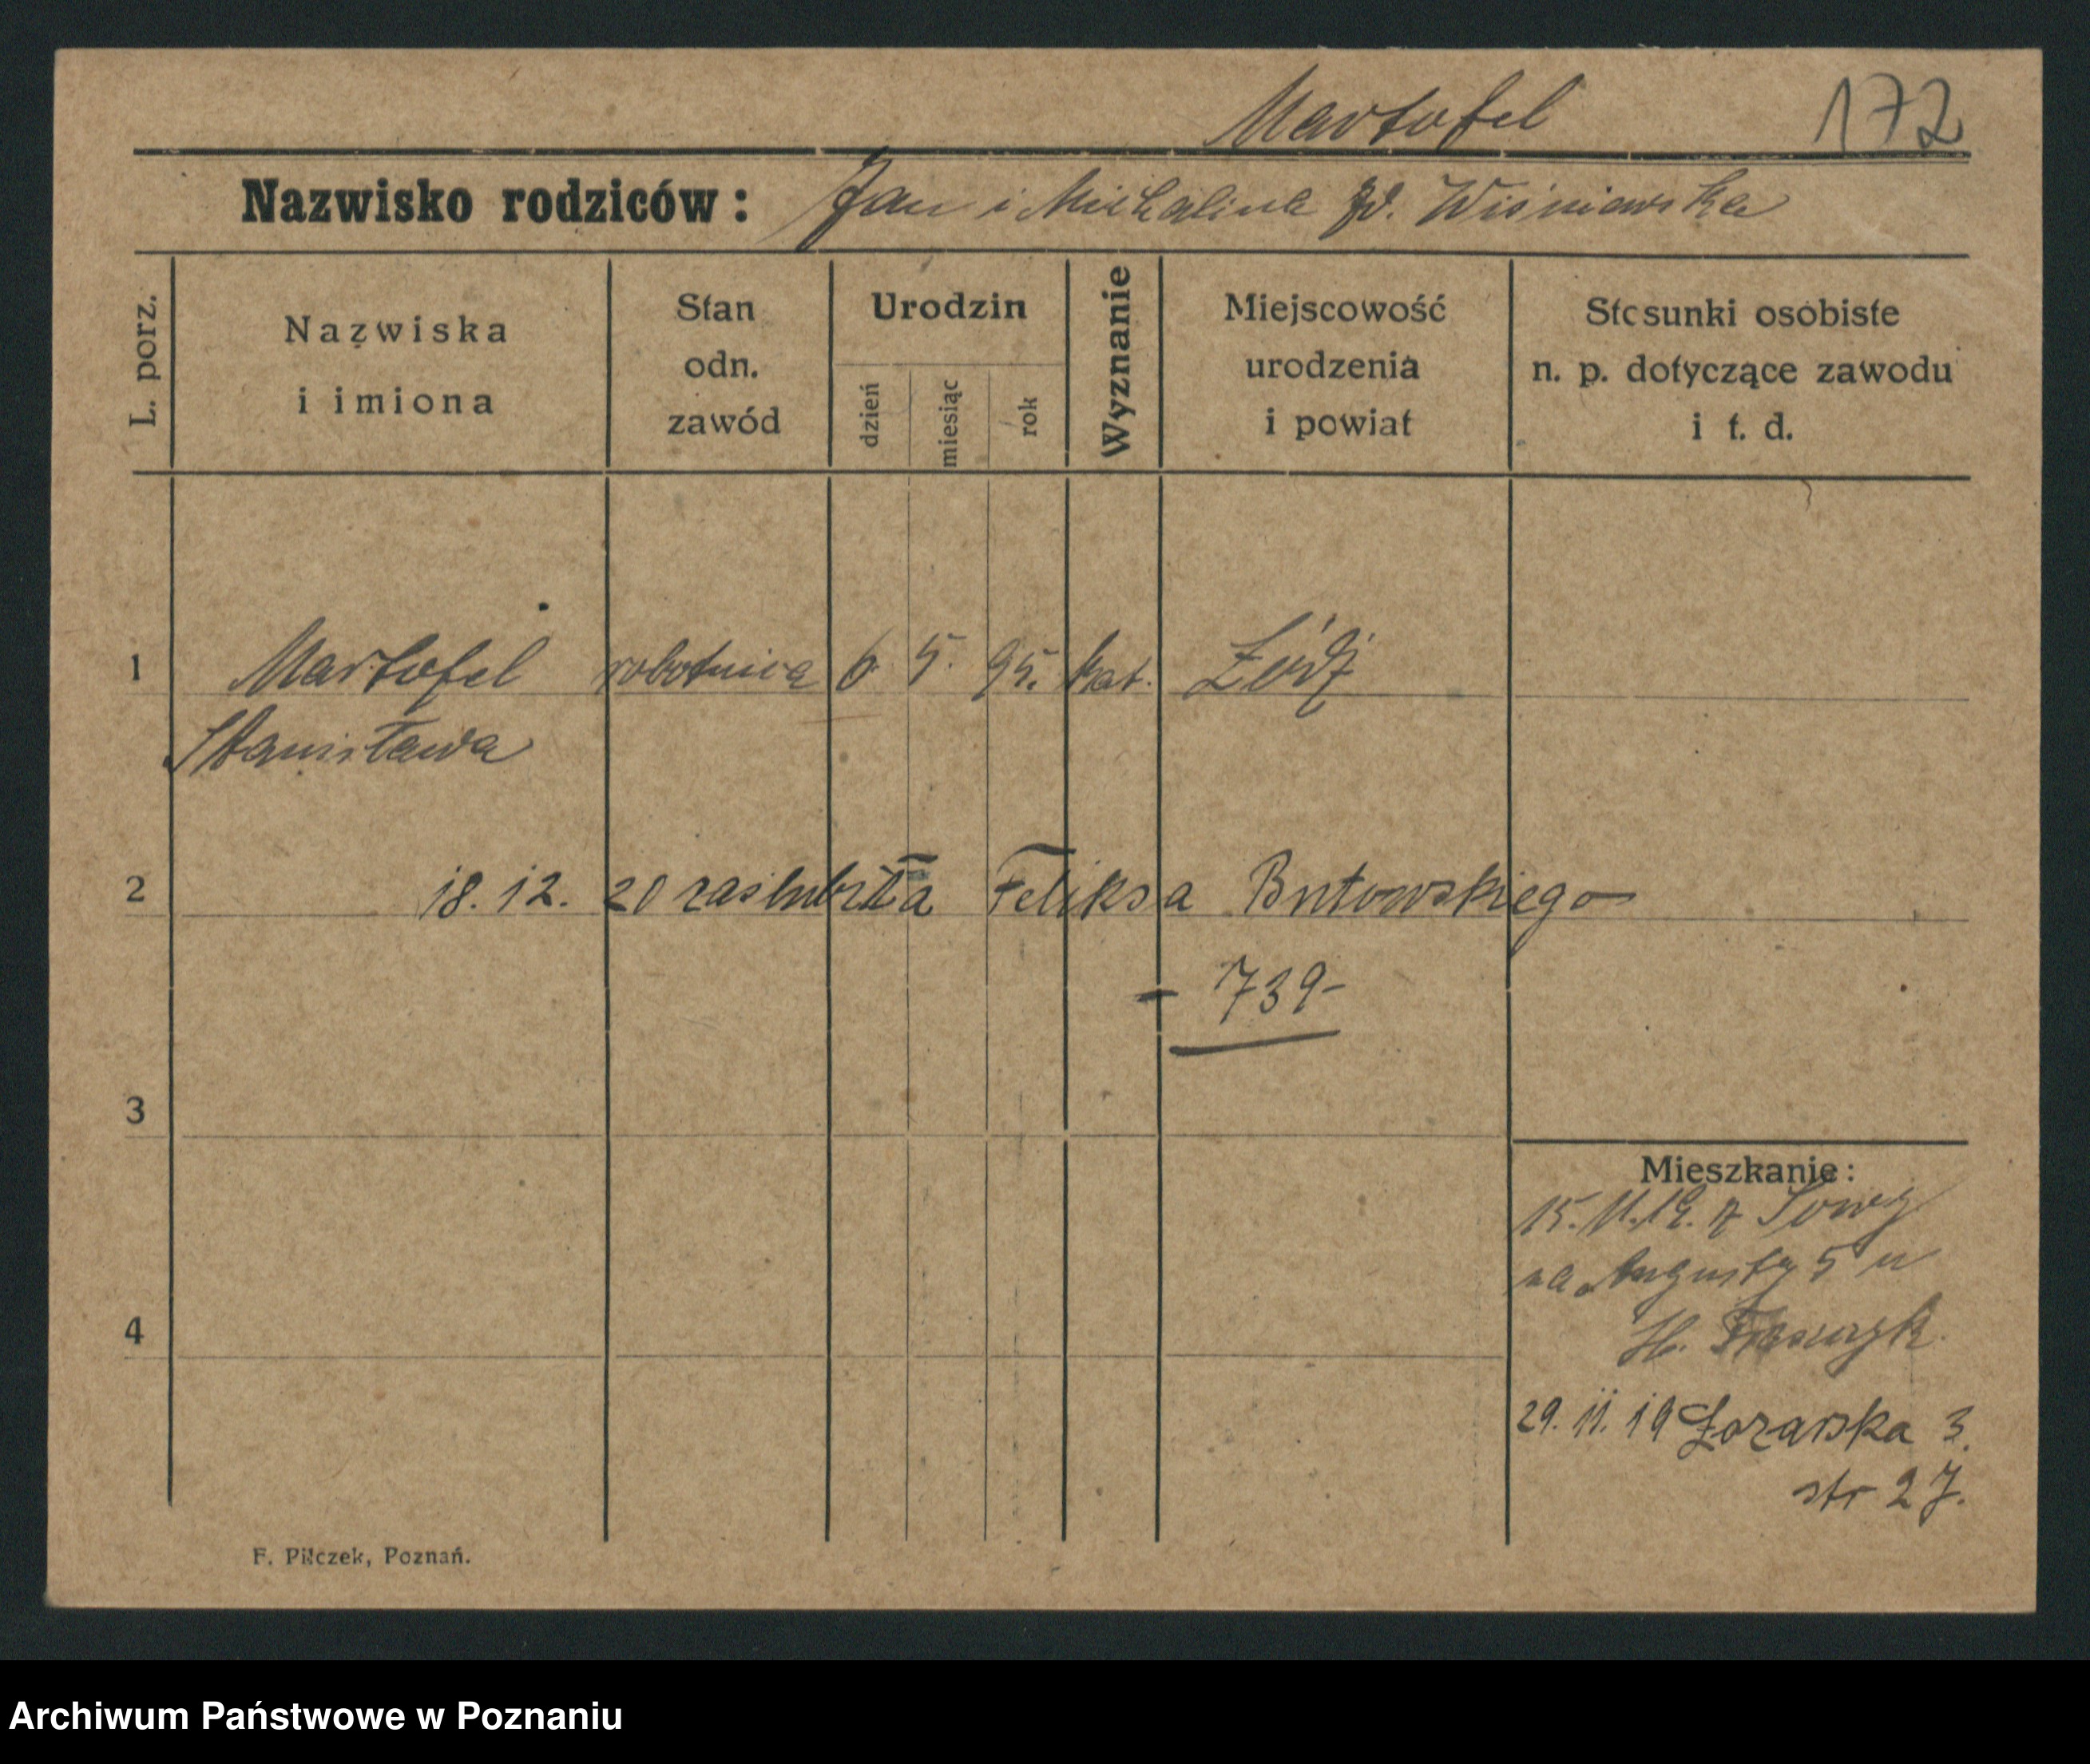 Martofel 172
Nazwisko rodziców: Jan i Michalina zd. Wiśniewska
L. porz.
Nazwiska
i imiona
Stan
odn.
zawód
Urodzin
dzień
miesiąc
rok
Wyznanie
Miejscowość
urodzenia
i powiat
Stosunki osobiste
n. p. dotyczące zawodu
i t. d.
1 Martofel robotnica 6. 5. 95. kat. Łódź
Stanisława
2 18. 12. 20 zaślubiła Feliksa Butowskiego
- 739-
3
Mieszkanie:
15. 11. 19. z
na Augusty 5 u
4 H.
29. 11. 19 Łozarska 3.
str 27.
F. Pilczek, Poznań.
Archiwum Państwowe w Poznaniu